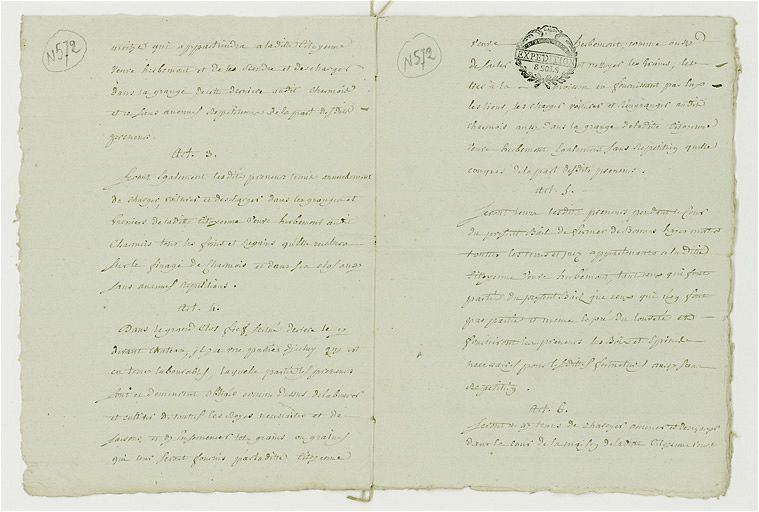 N572
moitié qui appartiendra a ladite Citoyenne
veuve herbemont et de les Rendre et descharger
dans la grange de cette derniere audit Chamois
et ce sans aucunes Repetitions de la part desdits
preneurs.
Art. 3.
Seront Egalement lesdits preneurs tenus annuellement
de charger voiturer et descharger dans les granges et
greniers de ladite Citoyenne veuve herbemont audit
Chamois tous les foins et Regains qu'elle recoltera
sur le finage de Chamois et dans sa closaux
sans aucunes Repetitions.
Art. 4.
Dans le grand Clos fermé derriere le
devant chateau, il y a une partie d'iceluy qui est
en terre labourable, laquelle partie les preneurs
sont et demeurent obligés comme dessus de labourer
et cultiver de toutes les Royes necessaires et de
saisons et d'y ensemencer les grains ou graines
qui leur seront fournis par ladite Citoyenne
N572
veuve herbemont, comme aussi
EXPEDITION
8 SOLS
de et nettoyer les Grains, les
à la en fournissant par luy
les liens, les charger voiturer et Rengranger audit
chamois aussi dans la grange de ladite Citoyenne
veuve herbemont Egalement sans Repetition quelle
conques de la part desdits preneurs.
Art. 5.
Seront tenus lesdits preneurs pendant le Cour
du present Bail de fermer de Bonnes hayes mortes
toutes les terres et prez appartenants a ladite
Citoyenne veuve herbemont, tant ceux qui font
partie du present Bail que ceux qui n'en font
pas partie et meme le pré du et
fourniront les preneurs les Bois et Epines
necessaires pour lesdites fermetures aussi sans
Repetition.
Art. 6.
Seront aussy tenus de charoyer amener et descharger
dans la Cour de la maison de ladite Citoyenne veuve